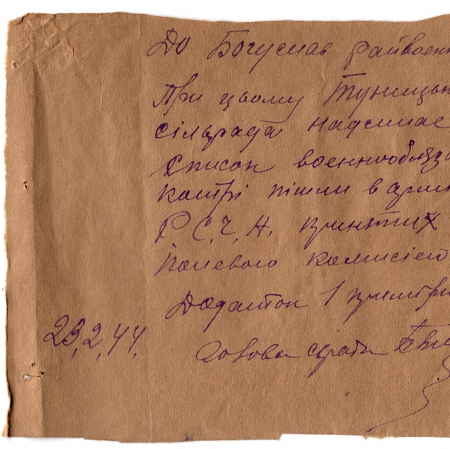 До Богуслав райвоен
При цьому Туницьк
сільрада надсилає
список военнообяза
котрі пішли в арм
Р.С.Ч.А. принятих
полевою комисією
Додаток 1 примірн
23,2,44, Голова с/ради